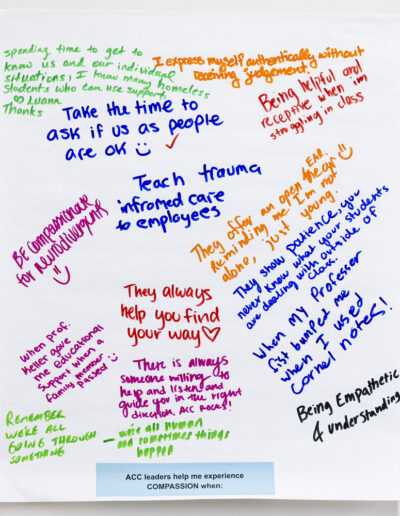 spending time to get to
know us and our individual
situations, I know many homeless
students who can use support
♡ Luann
Thanks
I express myself authentically without
receiving judgement.
Being helpful and
receptive when im
struggling in class
Take the time to
ask if us as people
are ok ☺
✓
Teach trauma
infromed care
to employees
BE compassionate
for neurodivergents
They offer an open EAR
hear
Reminding me I'm not
alone, just young.
They show patience, you
never know what your students
are dealing with outside of
class.
They always
help you find
your way ♡
When my Professor
fist bumped me
when I used
cornel notes!
when prof.
Keller gave
me educational
support when a
family member
passed
There is always
someone willing to
help and listen and
guide you in the right
direction. ACC Rocks!
Being Empathetic
& understanding
REMEMBER
WE'RE ALL
GOING THROUGH
SOMETHING
— we're all human
and sometimes things
happen
ACC leaders help me experience
COMPASSION when: